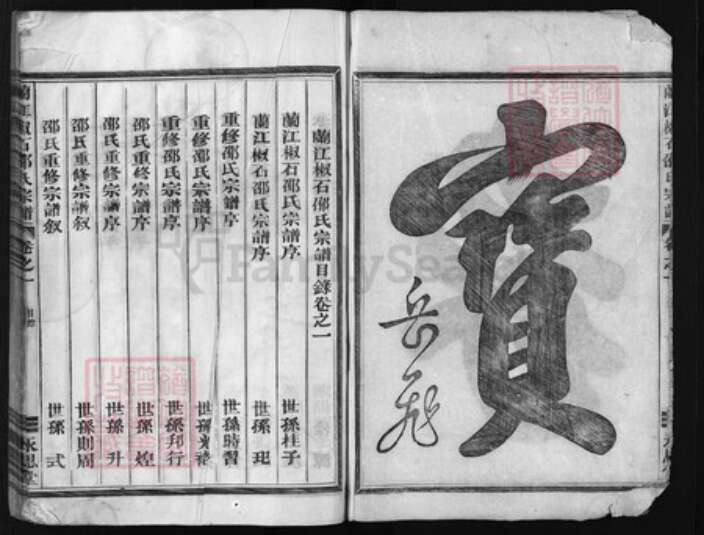 寶
岳飛
蘭江椒石邵氏宗譜
蘭江椒石邵氏宗譜目錄卷之一
蘭江椒石邵氏宗譜序 世孫桂子
蘭江椒石邵氏宗譜序 世孫玘
重修邵氏宗譜序 世孫時習
重修邵氏宗譜序 世孫
重修邵氏宗譜序 世孫邦行
邵氏重修宗譜序 世孫煌
邵氏重修宗譜序 世孫升
邵氏重修宗譜叙 世孫則周
邵氏重修宗譜叙 世孫式
蘭江椒石邵氏宗譜 卷之一 目錄 永思堂
FamilySearch